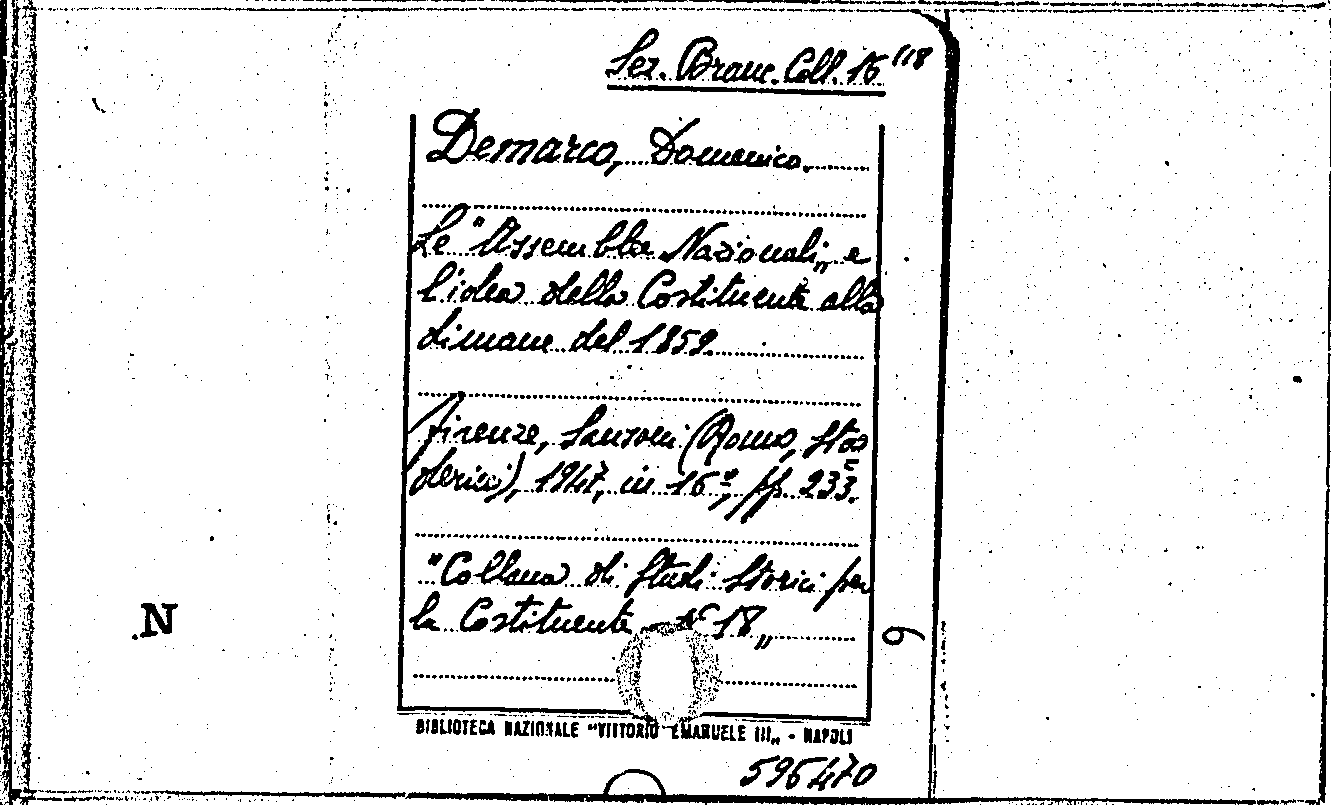 Sez. Branc. Coll. 16 "18
Demarco, Domenico.
Le "Assemblee Nazionali„ e
l'idea della Costituente alla
dimane del 1859.
Firenze, Sansoni (Roma, Sto
derici), 1947, in 16º, pp. 233.
"Collana di Studi Storici per
la Costituente - Nº 18„
N
6
BIBLIOTECA NAZIONALE "VITTORIO EMANUELE III„ - NAPOLI
596470